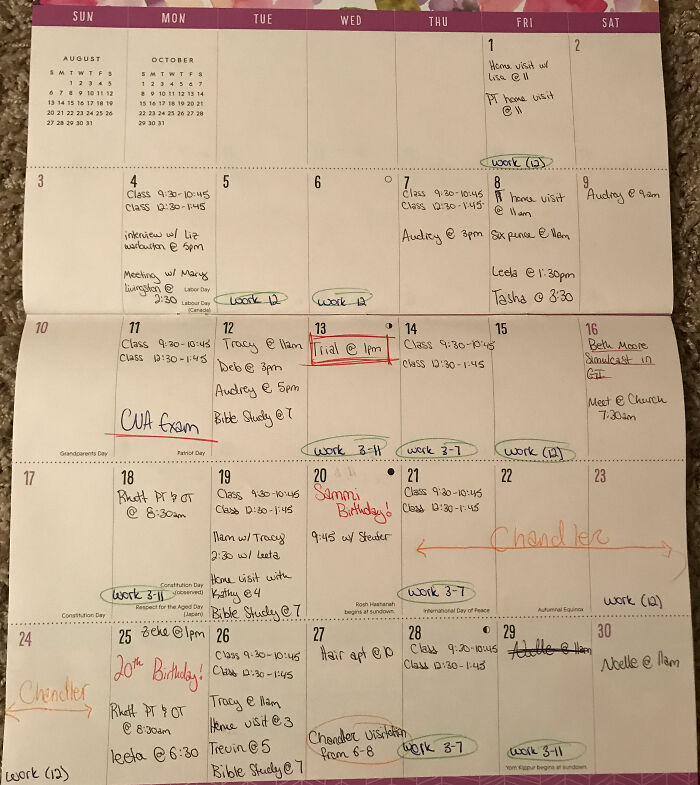 SUN MON TUE WED THU FRI SAT
AUGUST
S M T W T F S
1 2 3 4 5
6 7 8 9 10 11 12
13 14 15 16 17 18 19
20 21 22 23 24 25 26
27 28 29 30 31
OCTOBER
S M T W T F S
1 2 3 4 5 6 7
8 9 10 11 12 13 14
15 16 17 18 19 20 21
22 23 24 25 26 27 28
29 30 31
1
Home visit w/
Lisa @ 11
PT home visit
@ 11
work (12)
2
3
4
Class 9:30-10:45
Class 12:30-1:45
interview w/ Liz
warburton @ 5pm
Meeting w/ Mary
Livingston @
2:30
Labor Day
Labour Day
(Canada)
5
work 12
6
work 12
7
Class 9:30-10:45
Class 12:30-1:45
Audrey @ 3pm
8
home visit
@ 11am
Six pence @ 11am
Leeta @ 1:30pm
Tasha @ 3:30
9
Audrey @ 9am
10
Grandparents Day
11
Class 9:30-10:45
Class 12:30-1:45
CNA Exam
Patriot Day
12
Tracy @ 11am
Deb @ 3pm
Audrey @ 5pm
Bible Study @ 7
13
Trial @ 1pm
work 3-11
14
Class 9:30-10:45
Class 12:30-1:45
work 3-7
15
work (12)
16
Beth Moore
Simulcast in
G.I.
Meet @ Church
7:30am
17
Constitution Day
18
Rhett PT & OT
@ 8:30am
work 3-11
Constitution Day
(observed)
Respect for the Aged Day
(Japan)
19
Class 9:30-10:45
Class 12:30-1:45
11am w/ Tracy
2:30 w/ Leeta
Home visit with
Kathy @ 4
Bible Study @ 7
20
Sammi
Birthday!
9:45 w/
Rosh Hashanah
begins at sundown.
21
Class 9:30-10:45
Class 12:30-1:45
work 3-7
International Day of Peace
22
Chandler
Autumnal Equinox
23
work (12)
24
Chandler
work (12)
25
Zeke @ 1pm
20th Birthday!
Rhett PT & OT
@ 8:30am
leeta @ 6:30
26
Class 9:30-10:45
Class 12:30-1:45
Tracy @ 11am
Home visit @ 3
Trevin @ 5
Bible Study @ 7
27
Hair apt @ 10
Chandler visitation
from 6-8
28
Class 9:30-10:45
Class 12:30-1:45
work 3-7
29
Noelle @ 11am
work 3-11
Yom Kippur begins at sundown.
30
Noelle @ 11am